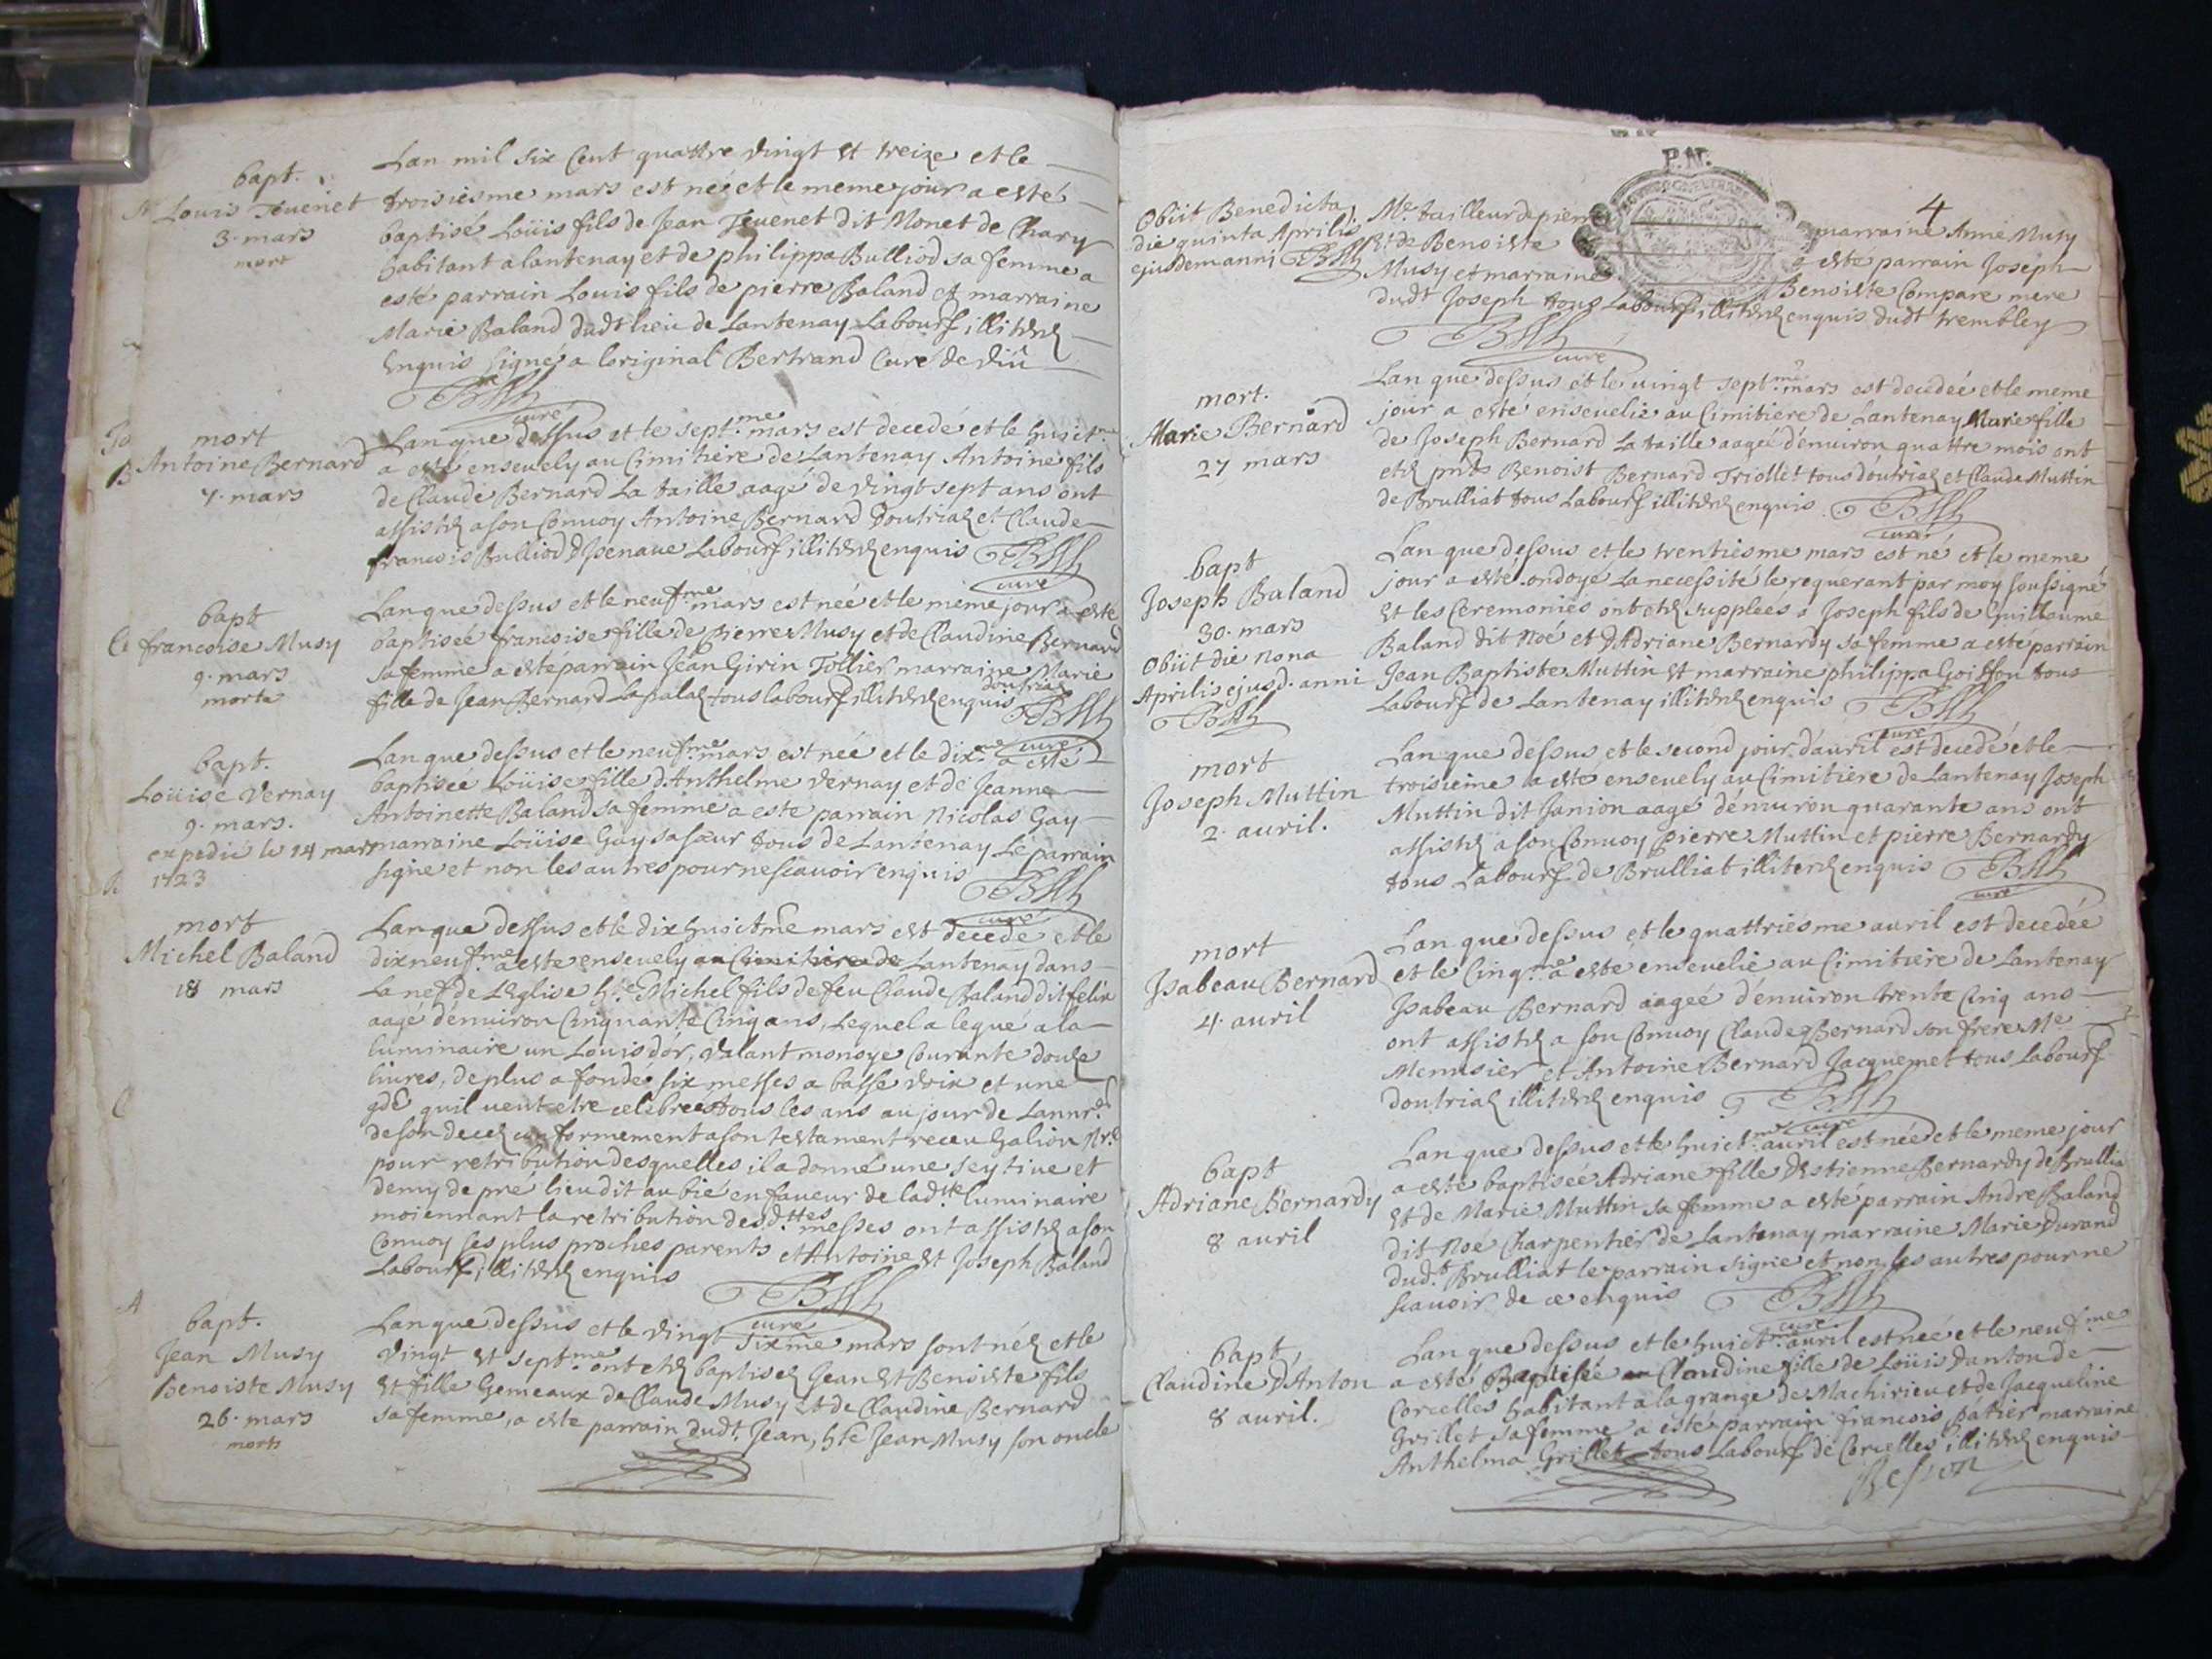 bapt.
Louis Tevenet
3. mars
mort
Lan mil six Cent quattre vingt et treize et le
troisiesme mars est né et le meme jour a esté
baptisé Loüis fils de Jean Tevenet dit Monet de Chary
habitant a lantenay et de philippa Bulliod sa femme a
esté parrain Louis fils de pierre Baland et marraine
Marie Baland dudt lieu de Lantenay Labours illiterez
enquis signé a loriginal Bertrand Curé de
curé
mort
Antoine Bernard
7. mars
Lan que dessus et le sept.me mars est decede et le huict.me
a esté ensevely au Cimitiere de Lantenay Antoine fils
de Claude Bernard La taille aagé de vingt sept ans ont
assistez a son Convoy Antoine Bernard Doutriaz et Claude
francois Bulliod d'Jsenave Labours illiterez enquis
curé
bapt
francoise Musy
9. mars
morte
Lan que dessus et le neufme mars est née et le meme jour a esté
baptisée francoise fille de Pierre Musy et de Claudine Bernard
sa femme a esté parrain Jean Girin Tollier marraine Marie
fille de Jean Bernard Lapalaz tous labours illiterez enquis
doutriaz
curé
bapt.
Loüise Vernay
9. mars.
expedié le 14 mars
1723
Lan que dessus et le neufme mars est née et le dix.me a esté
baptisée Loüise fille d'Anthelme Vernay et de Jeanne
Antoinette Baland sa femme a este parrain Nicolas Gay
marraine Loüise Gay sa sœur tous de Lantenay Le parrain
signe et non les autres pour ne scavoir enquis
curé
mort
Michel Baland
18 mars
Lan que dessus et le dix huictme mars est decedé et le
dix neufme a este ensevely au Cimitiere de Lantenay dans
La nef de L'Eglise h.e Michel fils de feu Claude Baland dit felix
aagé d'environ Cinquante Cinq ans, Lequel a legué a la
luminaire un Louis d'or, valant monoye Courante douze
livres, de plus a fondé six messes a basse voix et une
gde quil veut etre celebrées tous les ans au jour de Lannre
de son decez conformement a son testament receu Galion Nre
pour retribution desquelles il a donné une seytive et
demy de pré lieu dit au bié en faveur de ladtte luminaire
moiennant la retribution desd.ttes messes ont assistez a son
Convoy ses plus proches parents et Antoine et Joseph Baland
Labours illiterez enquis
curé
bapt.
Jean Musy
Benoiste Musy
26. mars
morts
Lan que dessus et le vingt sixme mars sont néz et le
vingt et septme ont etez baptisez Jean et Benoiste fils
et fille Gemeaux de Claude Musy et de Claudine Bernard
sa femme, a este parrain dudt. Jean, hte Jean Musy son oncle
P.N.
4
Obiit Benedicta
die quinta Aprilis
ejusdem anni
Me. tailleur de pierre marraine Anne Musy
Et de Benoiste a este parrain Joseph
Musy et marraine Benoiste Compare mere
dudt Joseph tous Labours illiterez enquis dudt trembley
curé
mort.
Marie Bernard
27 mars
Lan que dessus et le vingt sept.me mars est decedeé et le meme
jour a esté ensevelie au Cimitiere de Lantenay Marie fille
de Joseph Bernard La taille aageé d'environ quattre mois ont
etez pnts Benoist Bernard Triollet tous doutriaz et Claude Muttin
de Brulliat tous Labours illiterez enquis
curé
bapt
Joseph Baland
30. mars
Obiit die nona
Aprilis ejusd. anni
Lan que dessus et le trentiesme mars est né et le meme
jour a esté ondoyé La necessité le requerant par moy soussigné
Et les Ceremonies ont etez suppleés a Joseph fils de Guilleaume
Baland dit Noé et d'Adriane Bernardy sa femme a esté parrain
Jean Baptiste Muttin et marraine philippa tous
Labours de Lantenay illiterez enquis
curé
mort
Joseph Muttin
2. avril.
Lan que dessus et le second jour d'avril est decedé et le
troisieme a este ensevely au Cimitiere de Lantenay Joseph
Muttin dit Janion aagé d'environ quarante ans ont
assistez a son Convoy pierre Muttin et pierre Bernardy
tous Labours de Brulliat illiterez enquis
curé
mort
Jsabeau Bernard
4. avril
Lan que dessus et le quattriesme avril est decedée
et le Cinq.me a este ensevelie au Cimitiere de Lantenay
Jsabeau Bernard aageé d'environ trente Cinq ans
ont assistez a son Convoy Claude Bernard son frere Me
Menusier et Antoine Bernard Jacquemet tous Labours
doutriaz illiterez enquis
curé
bapt
Adriane Bernardy
8 avril
Lan que dessus et le huict.me avril est née et le meme jour
a esté baptisée Adriane fille d'Estienne Bernardy de Brullia
et de Marie Muttin sa femme a esté parrain Andre Baland
dit Noe Charpentier de Lantenay marraine Marie Durand
dud.t Brulliat le parrain signe et non les autres pour ne
scavoir de ce enquis
curé
bapt
Claudine D'Anton
8 avril.
Lan que dessus et le huictme avril est neé et le neufme
a esté Baptisée Claudine fille de Loüis Danton de
Corcelles habitant a la grange de Machirieu et de Jacqueline
Grillet sa femme a este parrain francois Patier marraine
Anthelma Grillet tous Labours de Corcelles illiterez enquis